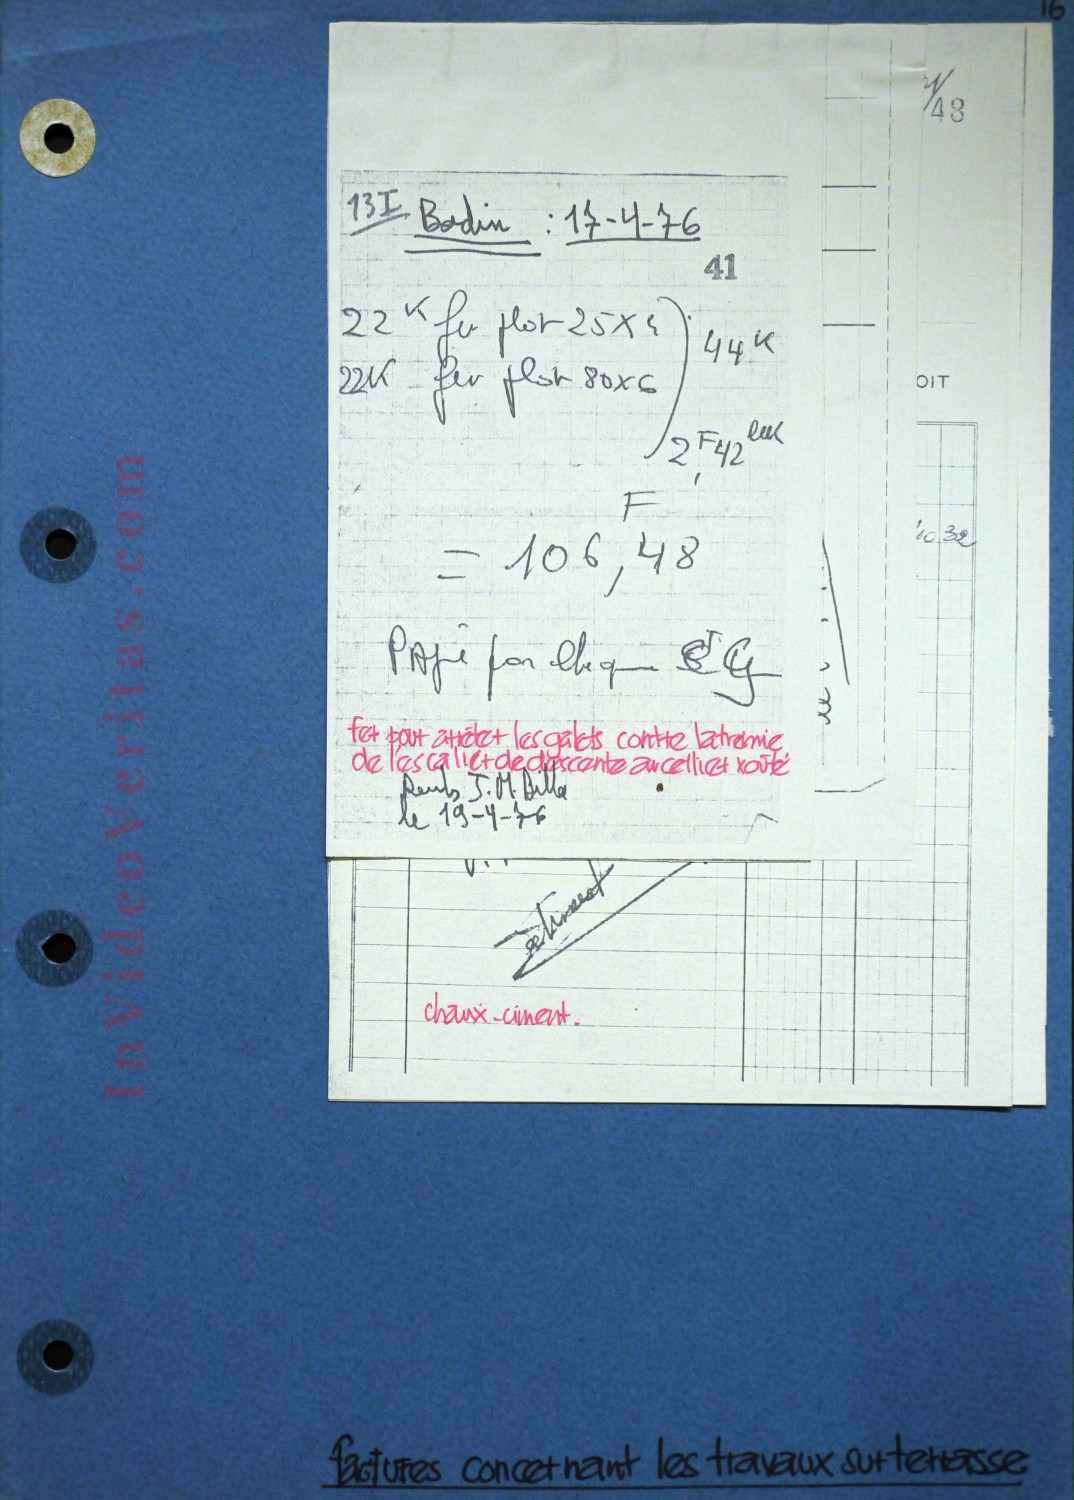 16
/48
13I Bodin : 17-4-76
41
22K fer plat 25x4
44K
22K fer plat 80x6
2F,42 le K
F
= 106,48
OIT
10 32
Payé par chèque
fer pour arrêter les galets contre la tremie
de lescalier de descente au cellier voûté
J.M. Billa
le 19-4-76
chaux-ciment.
InVideoVeritas.com
factures concernant les travaux sur terrasse